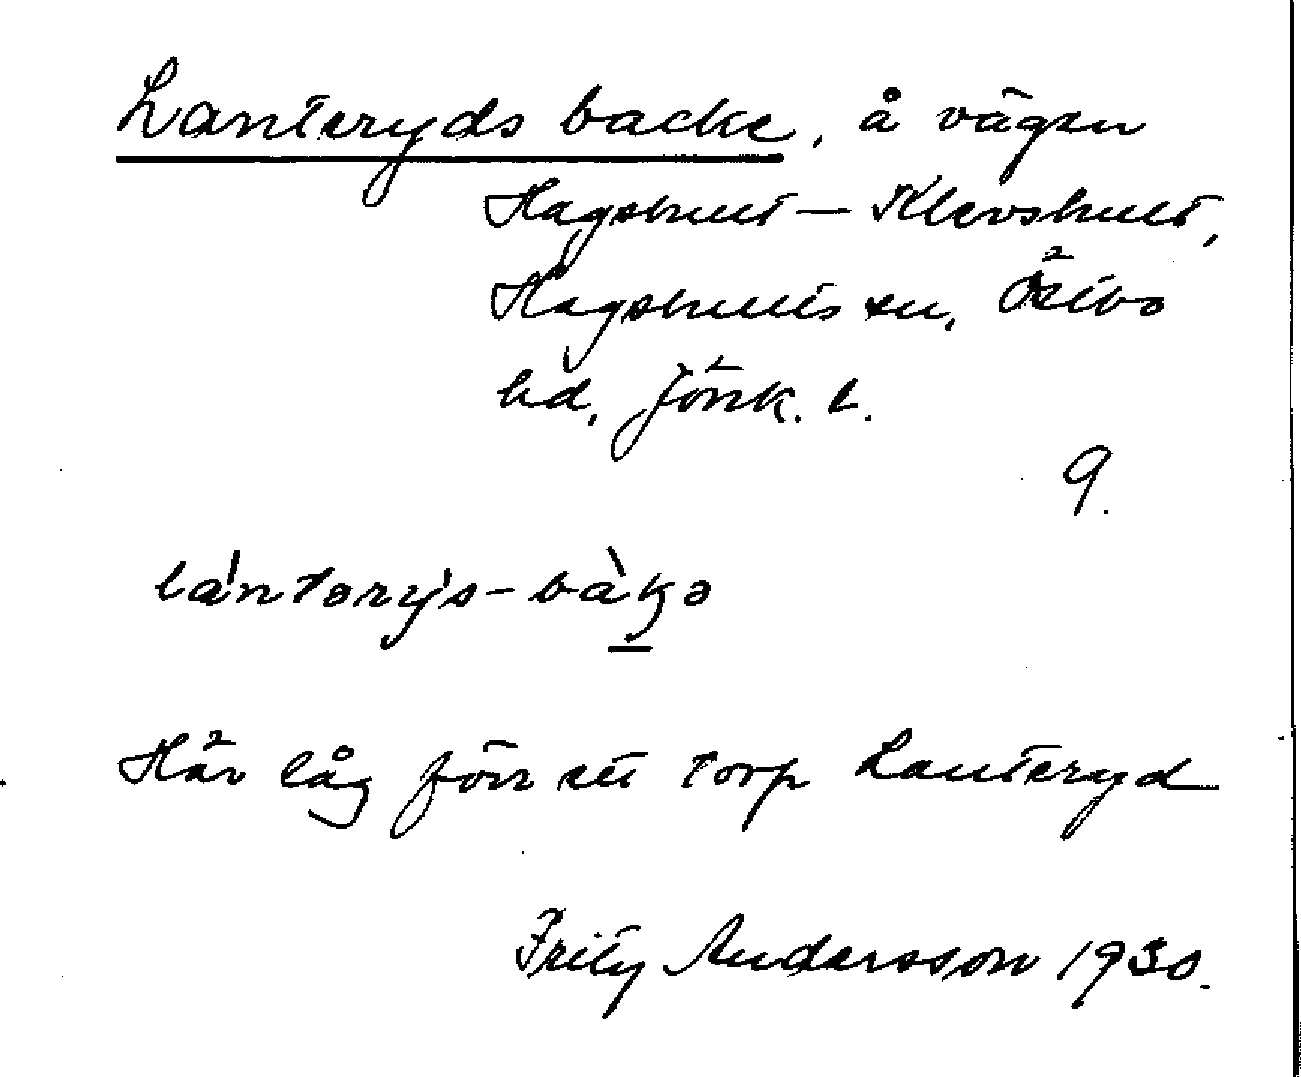 Lanteryds backe, å vägen
Hagshult – Klevshult,
Hagshults sn, Östbo
hd, Jönk. l.
9.
lán tərýs-bàkə
Här låg förr ett torp Lanteryd
Fritz Andersson 1930.